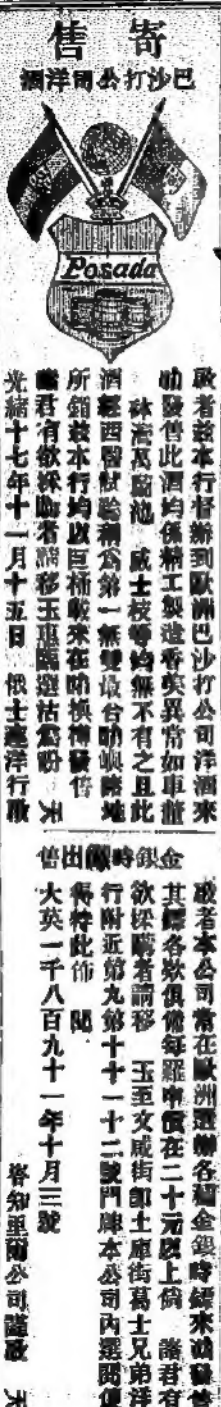 寄售
巴沙打公司洋酒
Posada
啟者茲本行督辦到歐洲巴沙打公司洋酒來
叻發售此酒均係精工製造香美異常如車厘
砵灣萬 池 威士枝等均無不有之且此
酒經西醫試驗稱為第一無雙最合叻嶼 地
所銷茲本行均以巨桶載來在叻換樽發售
諸君有欲採取者請移玉車臨選沽為盼 天
光緒十七年十一月十五日 俄士 洋行啟
金銀時鏢出售
啟者本公司常在歐洲選辦各種金銀時鏢來叻發售
其鏢各欵俱備每羅 價在二十元以上倘 諸君有
欲採購者請移 玉至文咸街即土庫街葛士兄弟洋
行附近第九第十十一十二號門牌本公司內選閱便
得特此佈 聞
大英一千八百九十一年十月三號
 知里爾公司謹啟 天